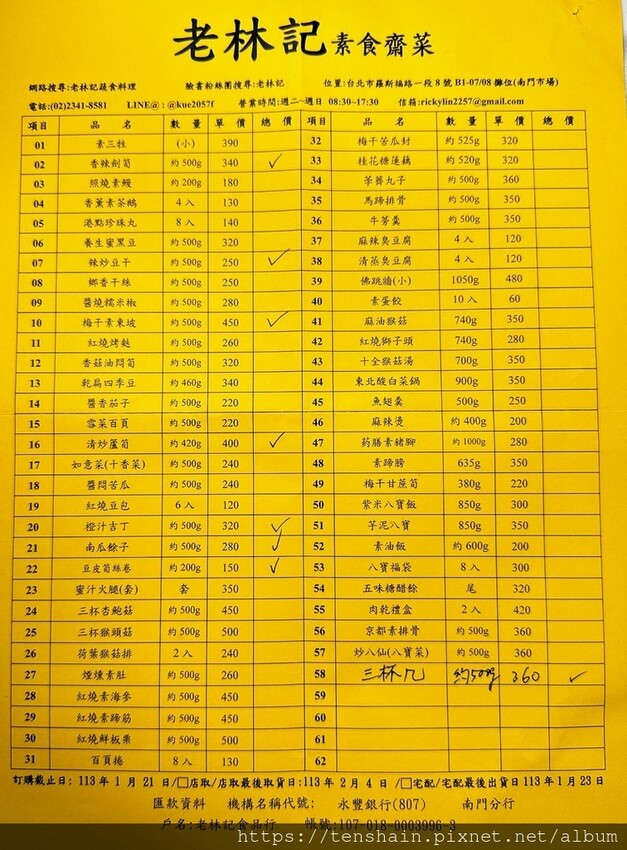 老林記素食齋菜
網路搜尋:老林記蔬食料理 臉書粉絲團搜尋:老林記 位置:台北市羅斯福路一段8號B1-07/08攤位(南門市場)
電話:(02)2341-8581 LINE@:@kue2057f 營業時間:週二~週日 08:30~17:30 信箱:rickylin2257@gmail.com
項目 品名 數量 單價 總價 項目 品名 數量 單價 總價
01 素三牲 (小) 390 32 梅干苦瓜封 約525g 320
02 香辣劍筍 約500g 340 ✓ 33 桂花糖蓮藕 約520g 320
03 照燒素鰻 約200g 180 34 荸薺丸子 約500g 360
04 香薰素茶鵝 4入 130 35 馬蹄排骨 約500g 350
05 港點珍珠丸 8入 140 36 牛蒡羹 約500g 350
06 養生蜜黑豆 約500g 320 37 麻辣臭豆腐 4入 120
07 辣炒豆干 約500g 250 ✓ 38 清蒸臭豆腐 4入 120
08 鄉香干絲 約500g 250 39 佛跳牆(小) 1050g 480
09 醬燒糯米椒 約500g 280 40 素蛋餃 10入 60
10 梅干素東坡 約500g 450 ✓ 41 麻油猴菇 740g 350
11 紅燒烤麩 約500g 260 42 紅燒獅子頭 740g 280
12 香菇油悶筍 約500g 320 43 十全猴菇湯 700g 350
13 乾扁四季豆 約460g 340 44 東北酸白菜鍋 900g 350
14 醬香茄子 約500g 220 45 魚翅羹 500g 250
15 雪菜百頁 約500g 220 46 麻辣燙 約400g 200
16 清炒蘆筍 約420g 400 ✓ 47 药膳素豬腳 約1000g 280
17 如意菜(十香菜) 約500g 240 48 素蹄膀 635g 350
18 醬悶苦瓜 約500g 240 49 梅干甘蔗筍 380g 220
19 紅燒豆包 6入 120 50 紫米八寶飯 850g 300
20 橙汁吉丁 約500g 320 ✓ 51 芋泥八寶 850g 350
21 南瓜餘子 約500g 280 ✓ 52 素油飯 約600g 200
22 豆皮筍絲卷 約200g 150 ✓ 53 八寶福袋 8入 300
23 蜜汁火腿(套) 套 350 54 五味糖醋餘 尾 320
24 三杯杏鮑菇 約500g 450 55 肉乾禮盒 2入 420
25 三杯猴頭菇 約500g 500 56 京都素排骨 約500g 360
26 荷葉猴菇排 2入 240 57 炒八仙(八寶菜) 約500g 360
27 煙燻素肚 約500g 260 58 三杯几 約500g 360 ✓
28 紅燒素海參 約500g 450 59
29 紅燒素蹄筋 約500g 450 60
30 紅燒鮮板栗 約500g 500 61
31 百頁捲 8入 130 62
訂購截止日:113年1月21日/□店取/店取最後取貨日:113年2月4日/□宅配/宅配最後出貨日113年1月23日
匯款資料 機構名稱代號: 永豐銀行(807) 南門分行
戶名:老林記食品行 帳號:107-018-0003996-3
https://tenshain.pixnet.net/album